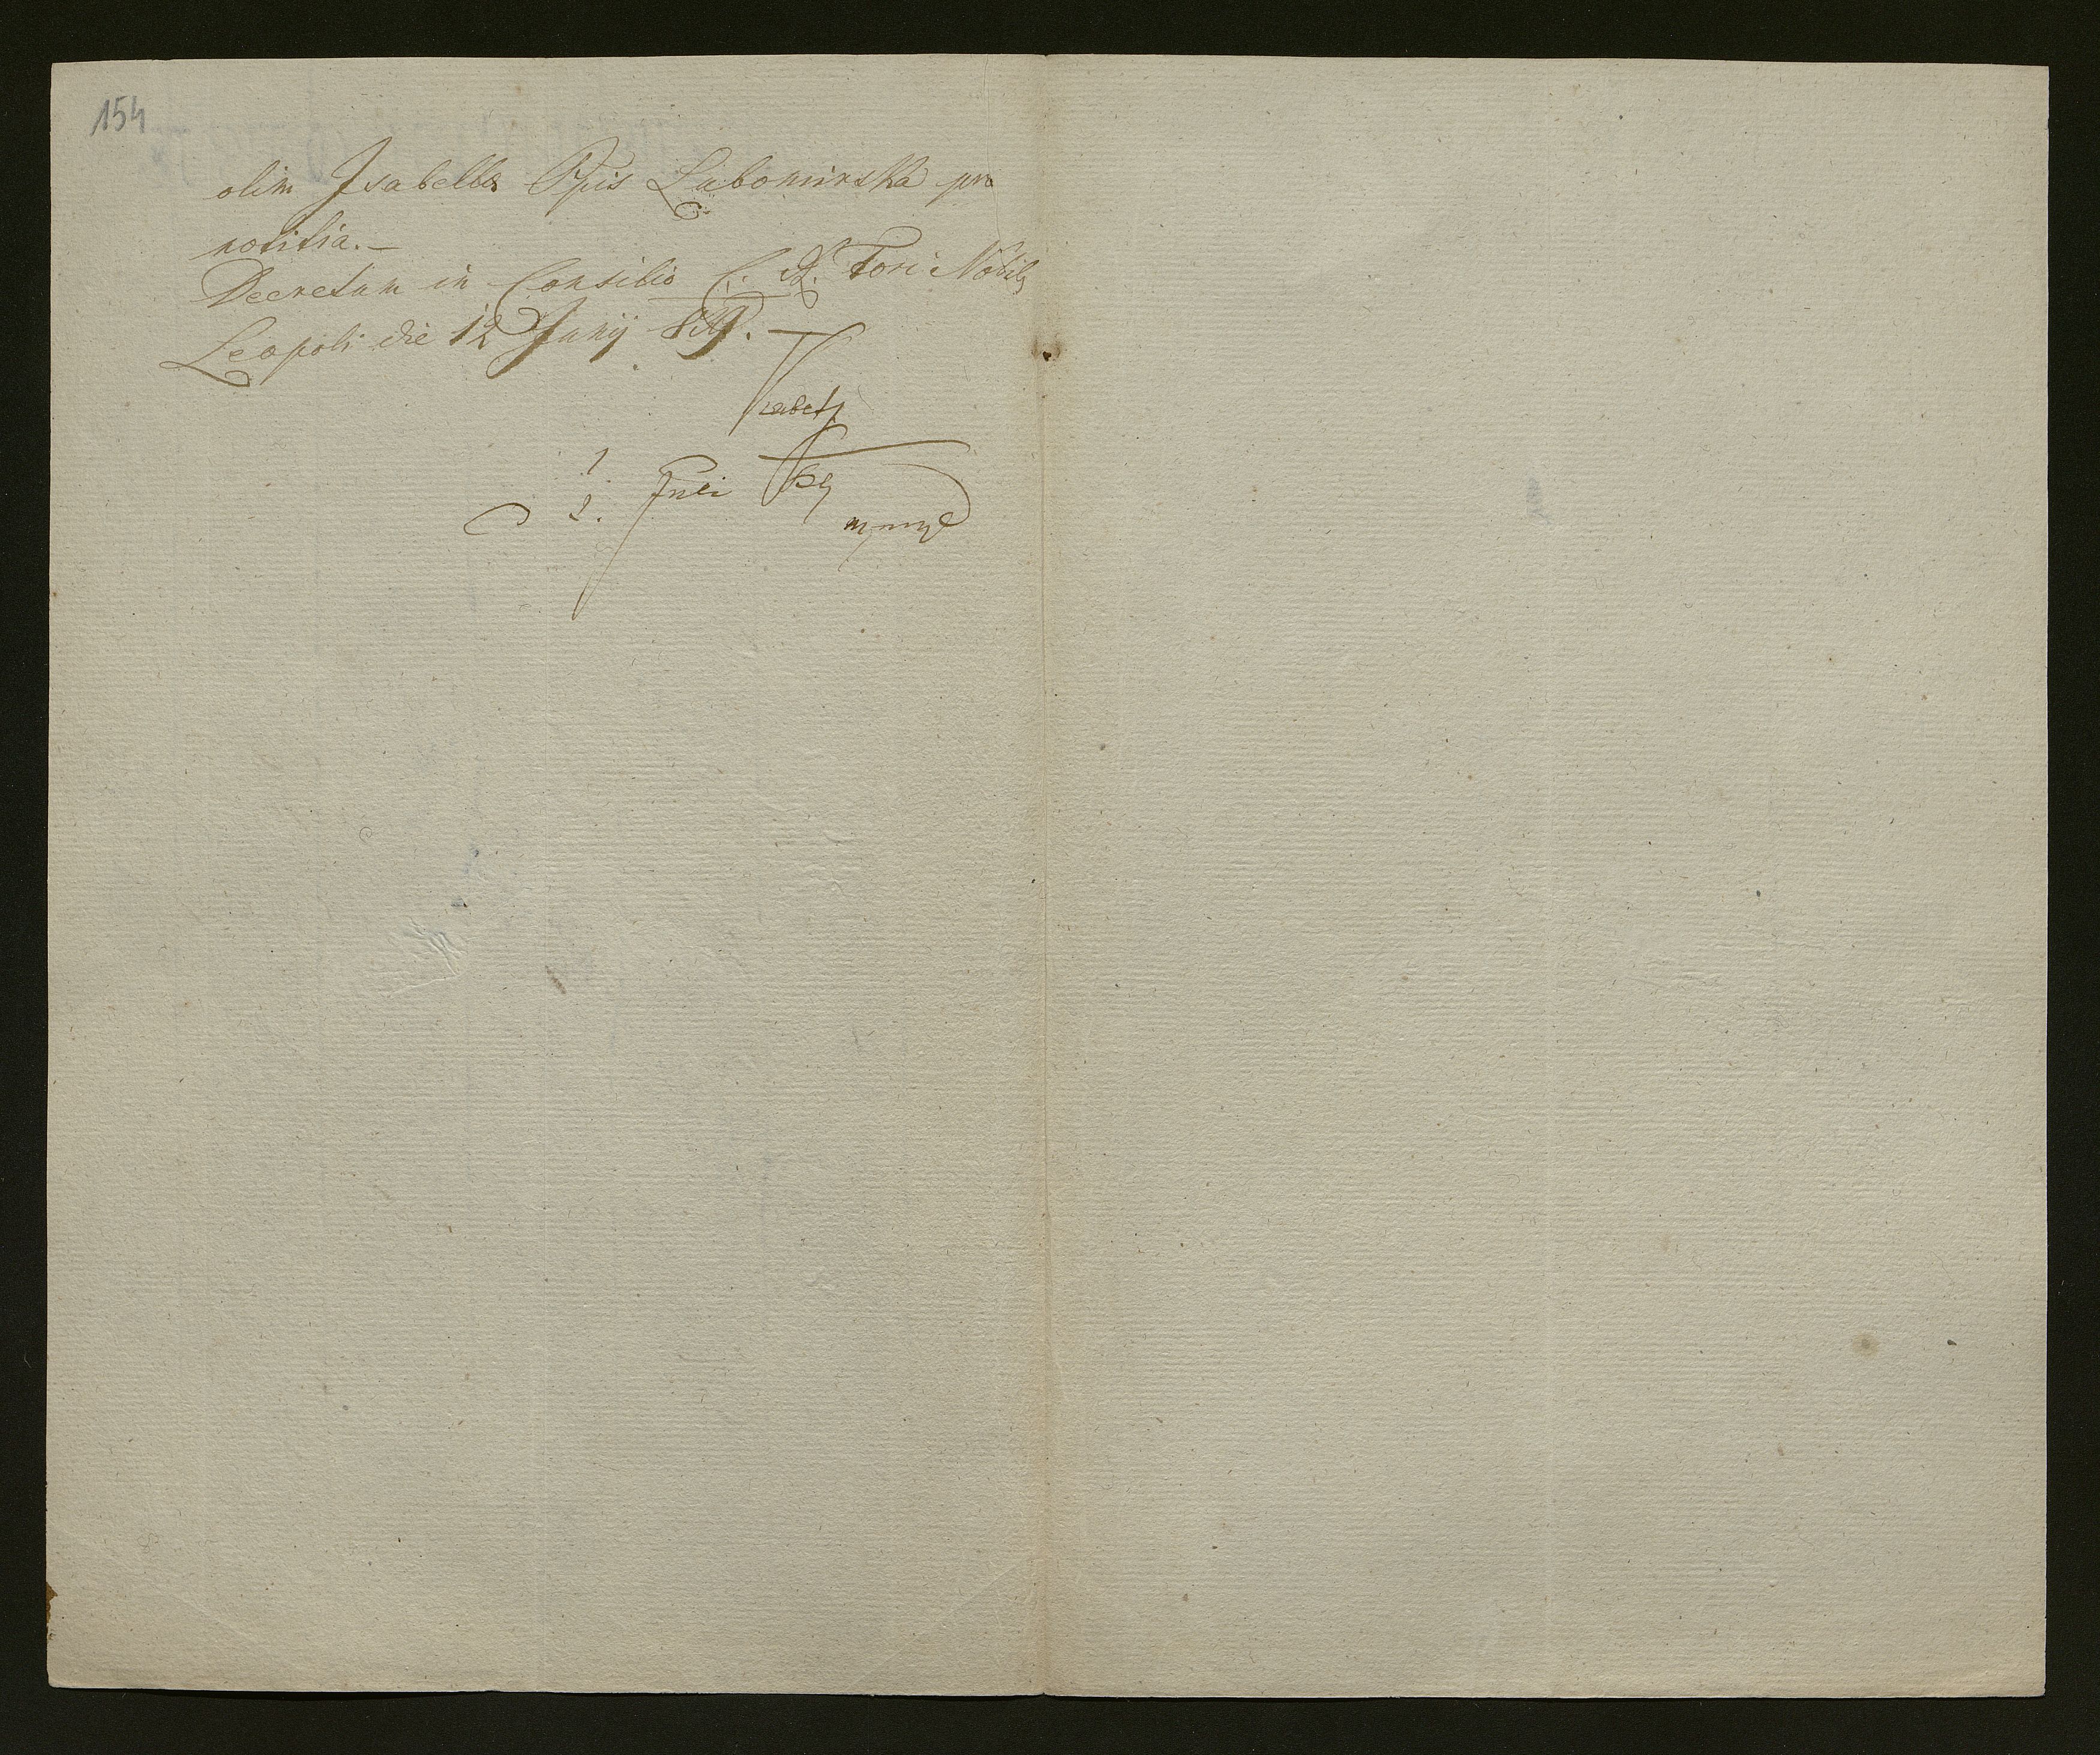 154
olim Isabella Ppis Lubomirska pro
notitia.—
Decretum in Consilio C. R. Fori Nobil
Leopoli die 12 Junij 819.—